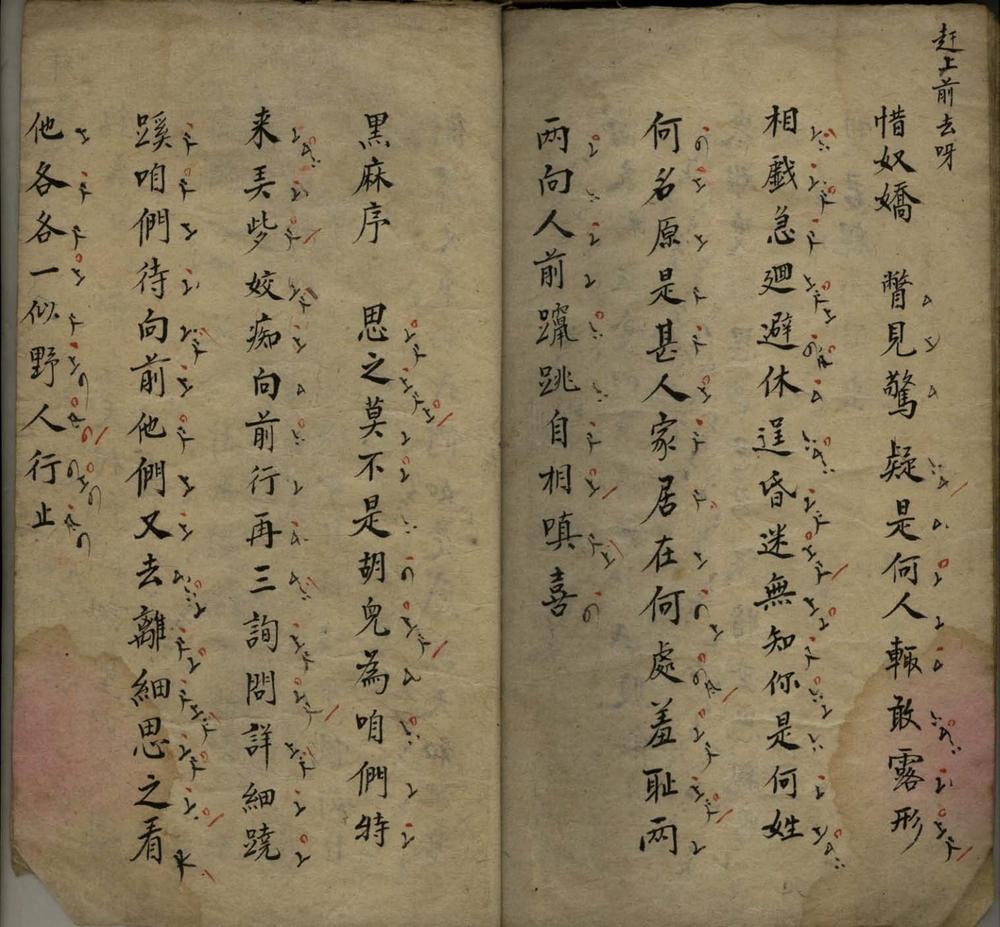 赶上前去呀
惜奴嬌　瞥見驚疑是何人輙敢露形
相戲急廻避休逞昏迷無知你是何姓
何名原是甚人家居在何處羞耻兩
兩向人前躥跳自相嗔喜
黑麻序　思之莫不是胡兒為咱們特
来弄些姣痴向前行再三詢問詳細蹺
蹊咱們待向前他們又去離細思之看
他各各一似野人行止